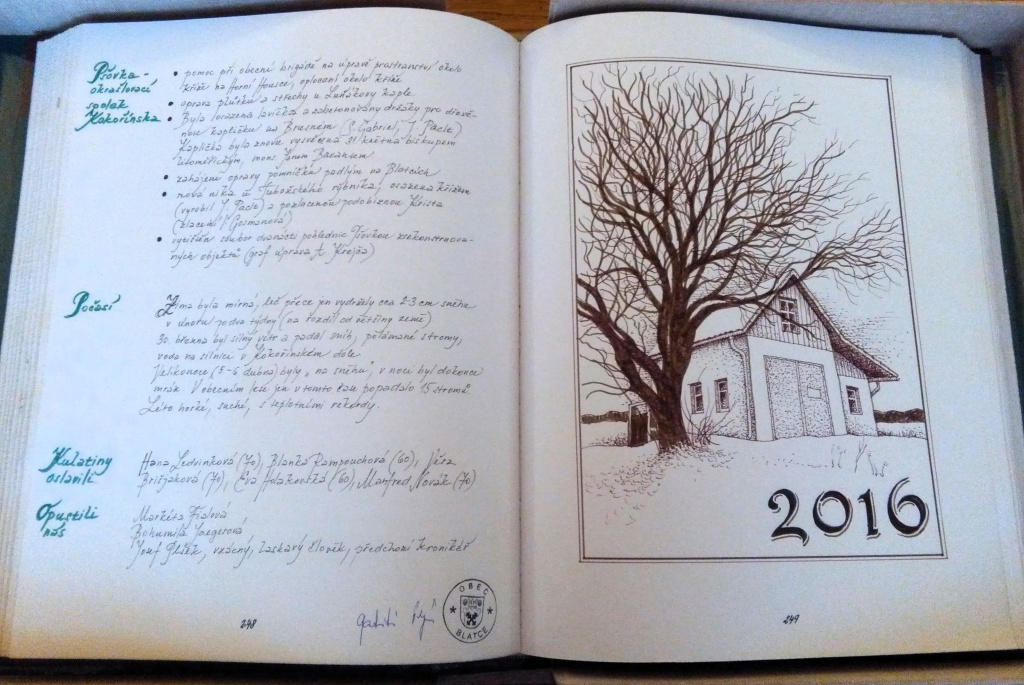 Pšovka -
okrašlovací
spolek
Kokořínska
• pomoc při obecní brigádě na úpravě prostranství okolo
kříže na Horní Housce, oplocení okolo kříže
• oprava plůtku a střechy u Luňákovy kaple
• Byla osazena lavička a zabetonovány držáky pro dřevě-
nou kapličku na Brusném (S. Gabriel, J. Pacle)
Kaplička byla znovu vysvěcena 31. května biskupem
litoměřickým, mons. Janem Baxantem
• zahájení opravy pomníčku padlým na Blatcích
• nová nika u Tubožského rybníka, osazena křížkem
(vyrobil J. Pacle) a pozlacenou podobiznou Krista
(zlacení
• vytištěn soubor dvanácti pohlednic Pšovkou zrekonstruova-
ných objektů (graf. úprava A. Krejča)
Počasí
Zima byla mírná, leč přece jen vydržely cca 2-3 cm sněhu
v únoru po dva týdny (na rozdíl od většiny země)
30. března byl silný vítr a padal sníh, polámané stromy,
voda na silnici v Kokořínském dole.
Velikonoce (5-6 dubna) byly „na sněhu", v noci byl dokonce
mráz. V obecním lese jen v tomto čase popadalo 15 stromů.
Léto horké, suché, s teplotními rekordy.
Kulatiny
oslavili
Hana Ledvinková (70), Blanka Rampouchová (60), Věra
Brišjaková (70), Eva (60), Manfred Novák (70)
Opustili
nás
Markéta Fialová
Bohumila Jaegerová
Josef Plíšek, vzácný, laskavý člověk, předchozí kronikář
OBEC
BLATCE
248
2016
249